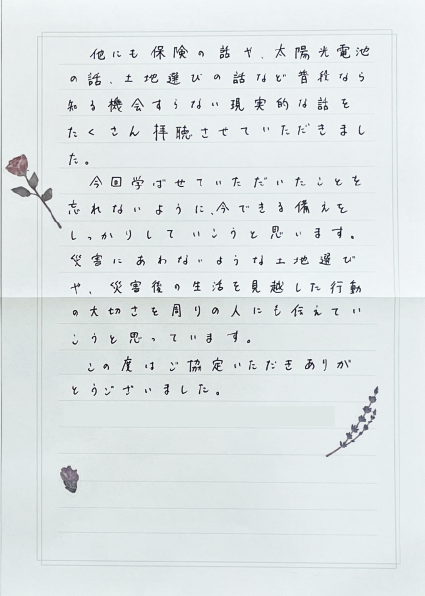 他にも保険の話や、太陽光電池
の話、土地選びの話など普段なら
知る機会すらない現実的な話を
たくさん拝聴させていただきまし
た。
今回学ばせていただいたことを
忘れないように、今できる備えを
しっかりしていこうと思います。
災害にあわないような土地選び
や、災害後の生活を見越した行動
の大切さを周りの人にも伝えてい
こうと思っています。
この度はご協定いただきありが
とうございました。